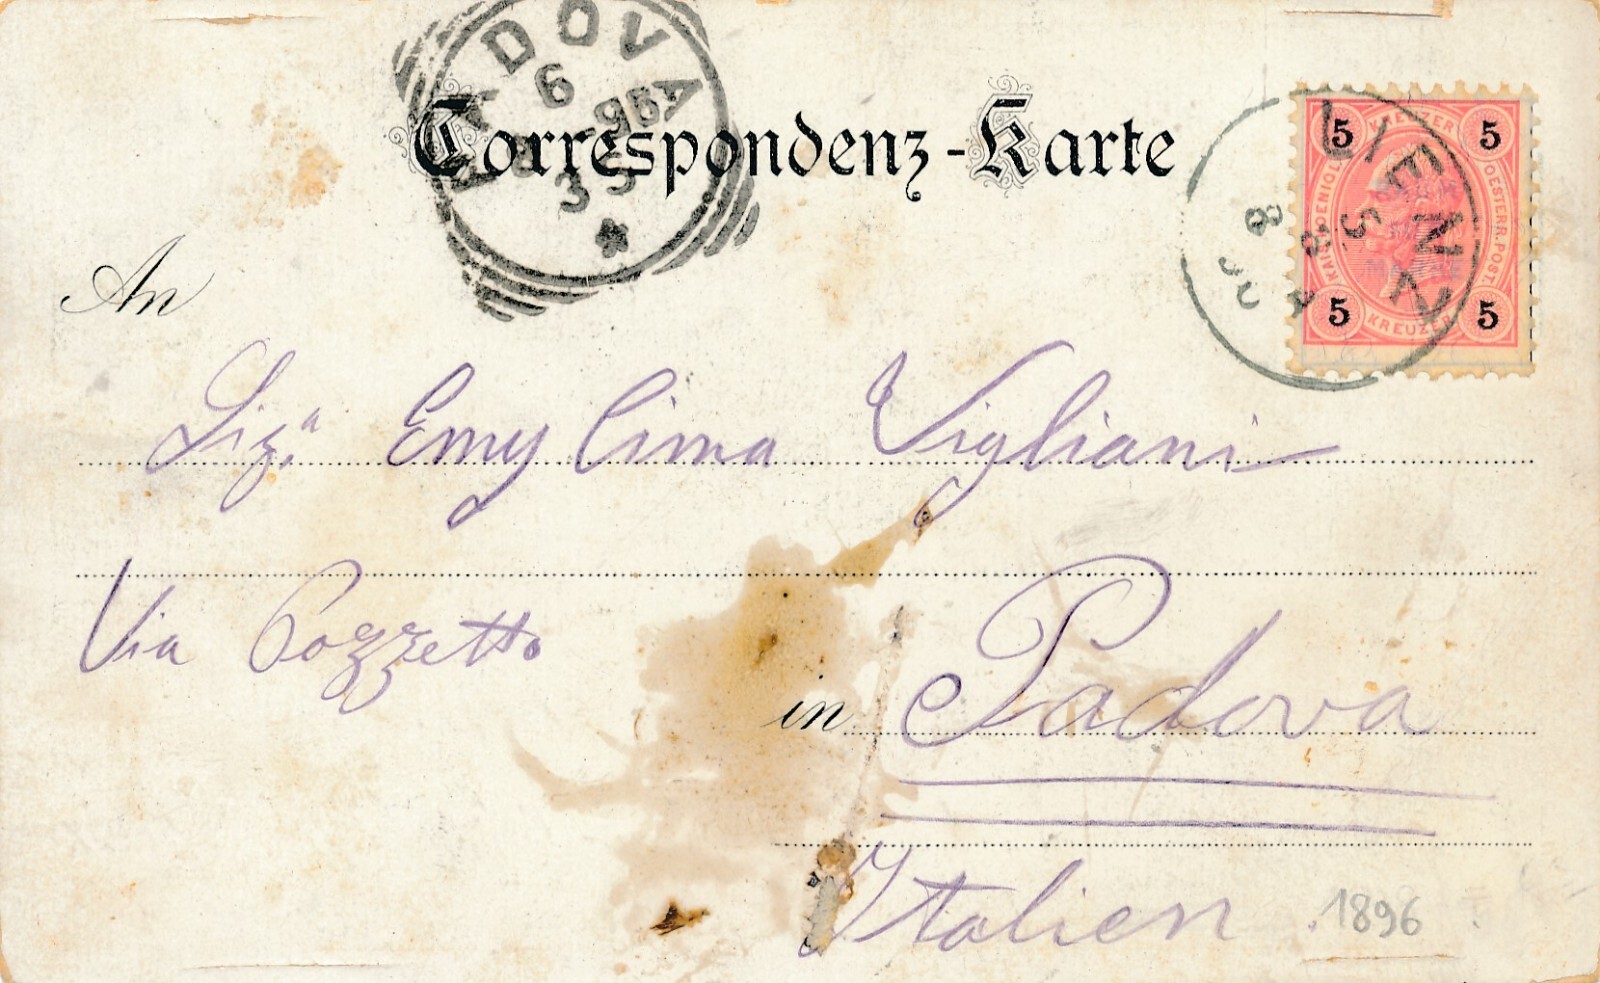 PADOVA
6
96
3 S
Correspondenz-Karte
LIENZ
5 8
8
5 KREUZER 5
KAIS. KOENIGL.
OESTERR. POST.
5 KREUZER 5
An
Sig.a Emy Cima Vigliani
Via Pozzetto
in Padova
Italien
1896